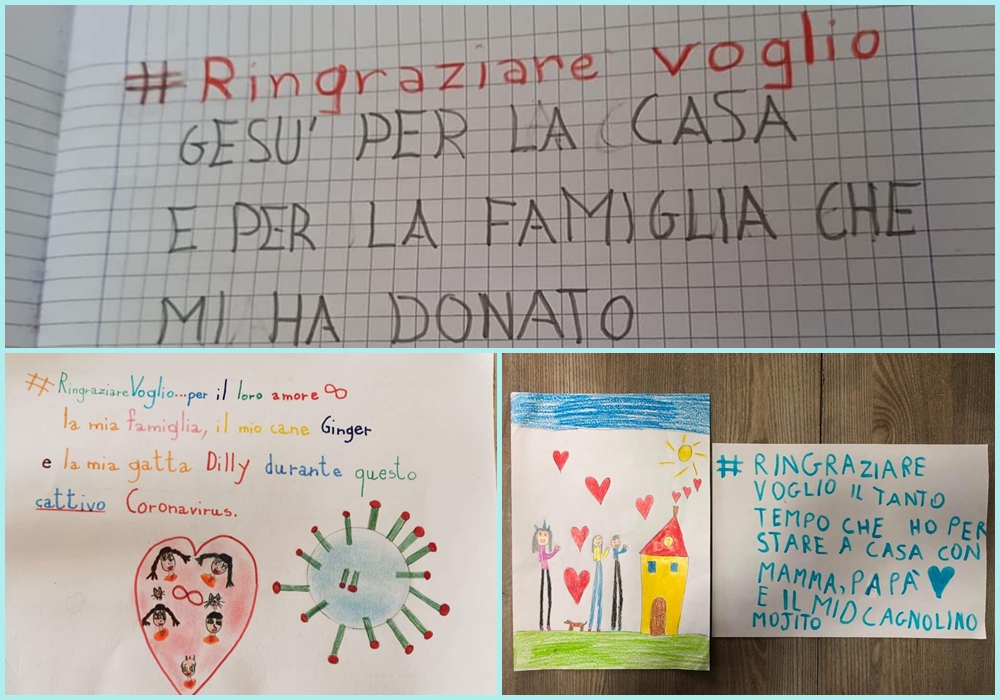 #Ringraziare voglio
GESU' PER LA CASA
E PER LA FAMIGLIA CHE
MI HA DONATO
#RingraziareVoglio...per il loro amore ∞
la mia famiglia, il mio cane Ginger
e la mia gatta Dilly durante questo
cattivo Coronavirus.
# RINGRAZIARE
VOGLIO IL TANTO
TEMPO CHE HO PER
STARE A CASA CON
MAMMA, PAPÀ
E IL MIO CAGNOLINO
MOJITO